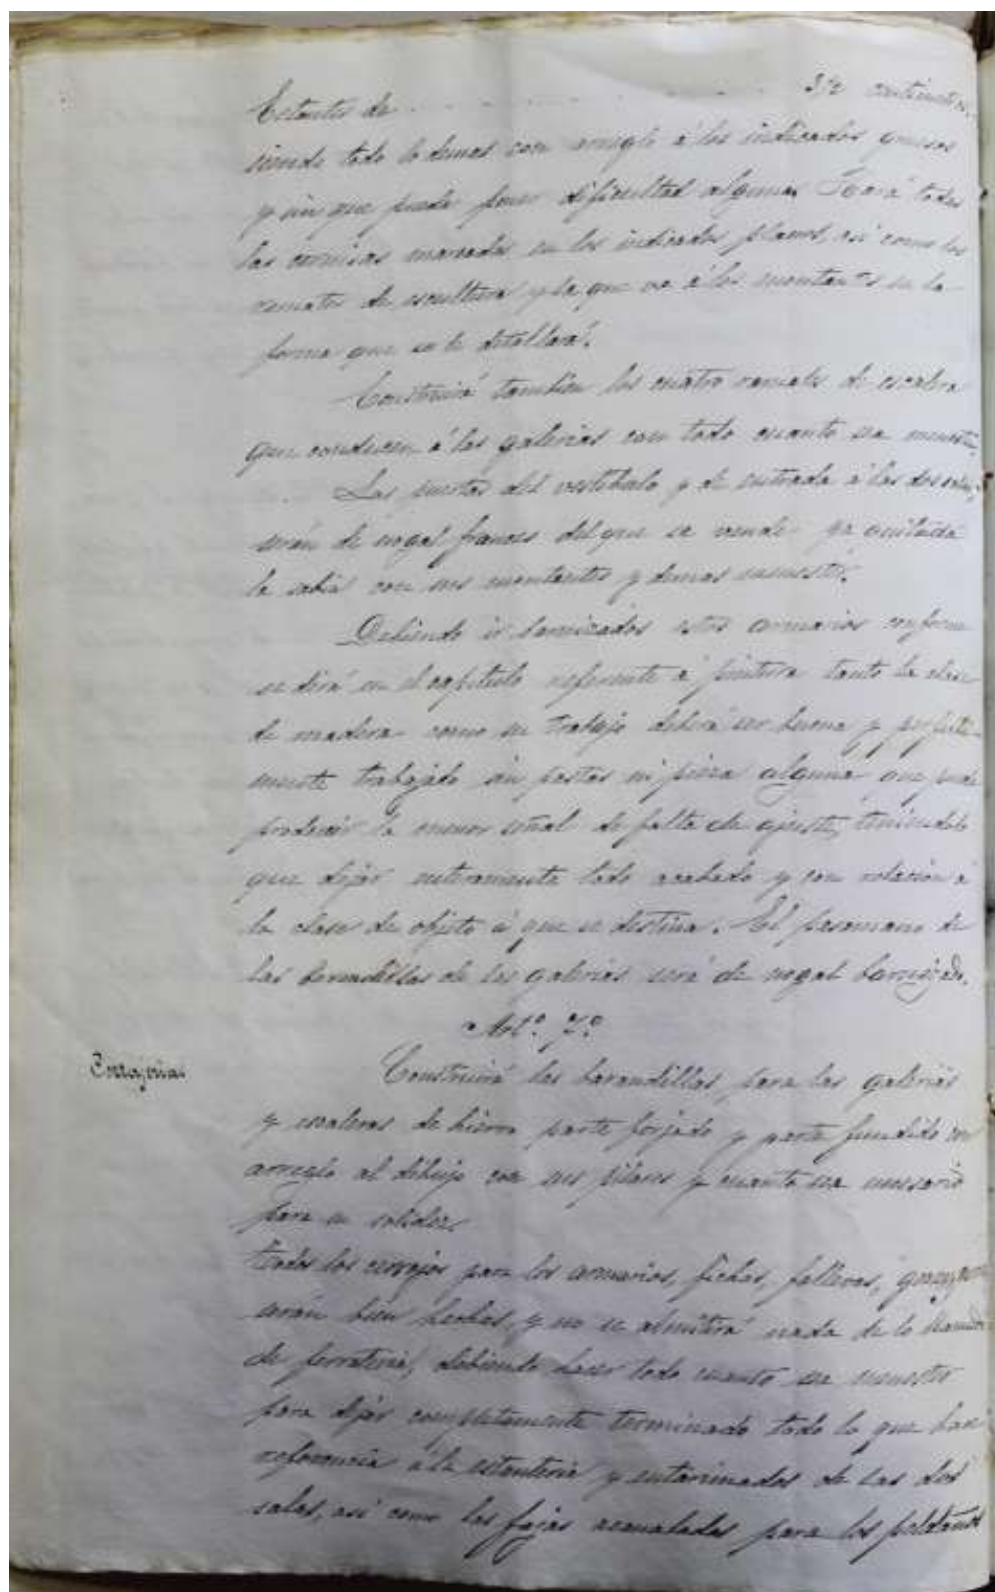 Estantes de . . . . . . . . . . . 3 1/2 centimetros,
siendo todo lo demas con arreglo á los indicados gruesos
y sin que pueda poner dificultad alguna. Hará todas
las cornisas marcadas en los indicados planos, asi como los
remates de escultura y la que va á los montantes en la
forma que se le detallará.
Construirá tambien los cuatro ramales de escalera
que conducen á las galerias con todo cuanto sea menester.
Las puertas del vestibulo y de entrada á las dos salas,
serán de nogal frances del que se vende ya quitada
la sabia con sus montantes y demas
Debiendo ir barnizados estos armarios conforme
se dirá en el capitulo referente á pintura tanto la clase
de madera como su trabajo deberá ser buena y perfecta-
mente trabajado sin pastas ni pieza alguna que pueda
producir la menor señal de falta de ajuste, teniendolo
que dejar enteramente todo acabado y con relacion á
la clase de objeto á que se destina. El pasamano de
las barandillas de las galerias será de nogal barnizado.
Artº. 7º
Cerrajerias
Construirá las barandillas para las galerias
y escaleras de hierro parte forjado y parte fundido con
arreglo al dibujo con sus pilares y cuanto sea necesario
para su solidez.
todos los cerrajes para los armarios, fichas, fallevas,
serán bien hechos, y no se admitirá nada de lo llamado
de ferreteria, debiendo hacer todo cuanto sea menester
para dejar completamente terminado todo lo que hace
referencia á la estanteria y entarimados de las dos
salas, asi como las fajas acanaladas para los peldaños